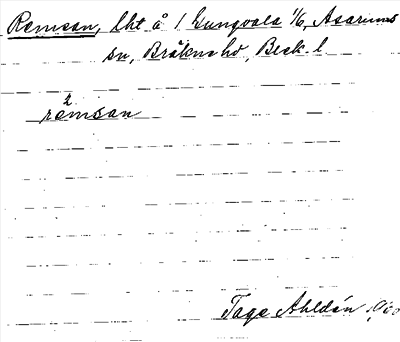 Remsan, lht å 1 Ljungvala 1/6, Asarums
sn, Bräkne hd, Blek. l
remsan
Tage Ahldén 1960